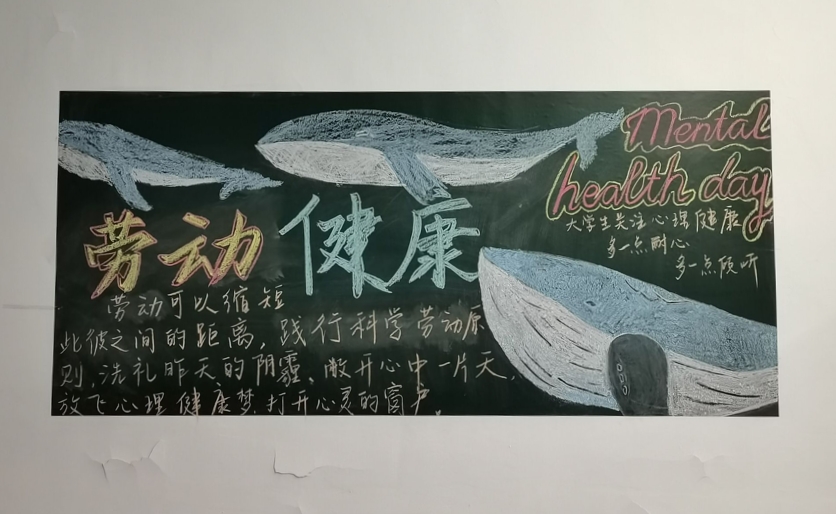 Mental
health day
大学生关注心理健康
多一点耐心
多一点倾听
劳动 健康
劳动可以缩短
此彼之间的距离，践行科学劳动原
则，洗礼昨天的阴霾，敞开心中一片天，
放飞心理健康梦，打开心灵的窗户。